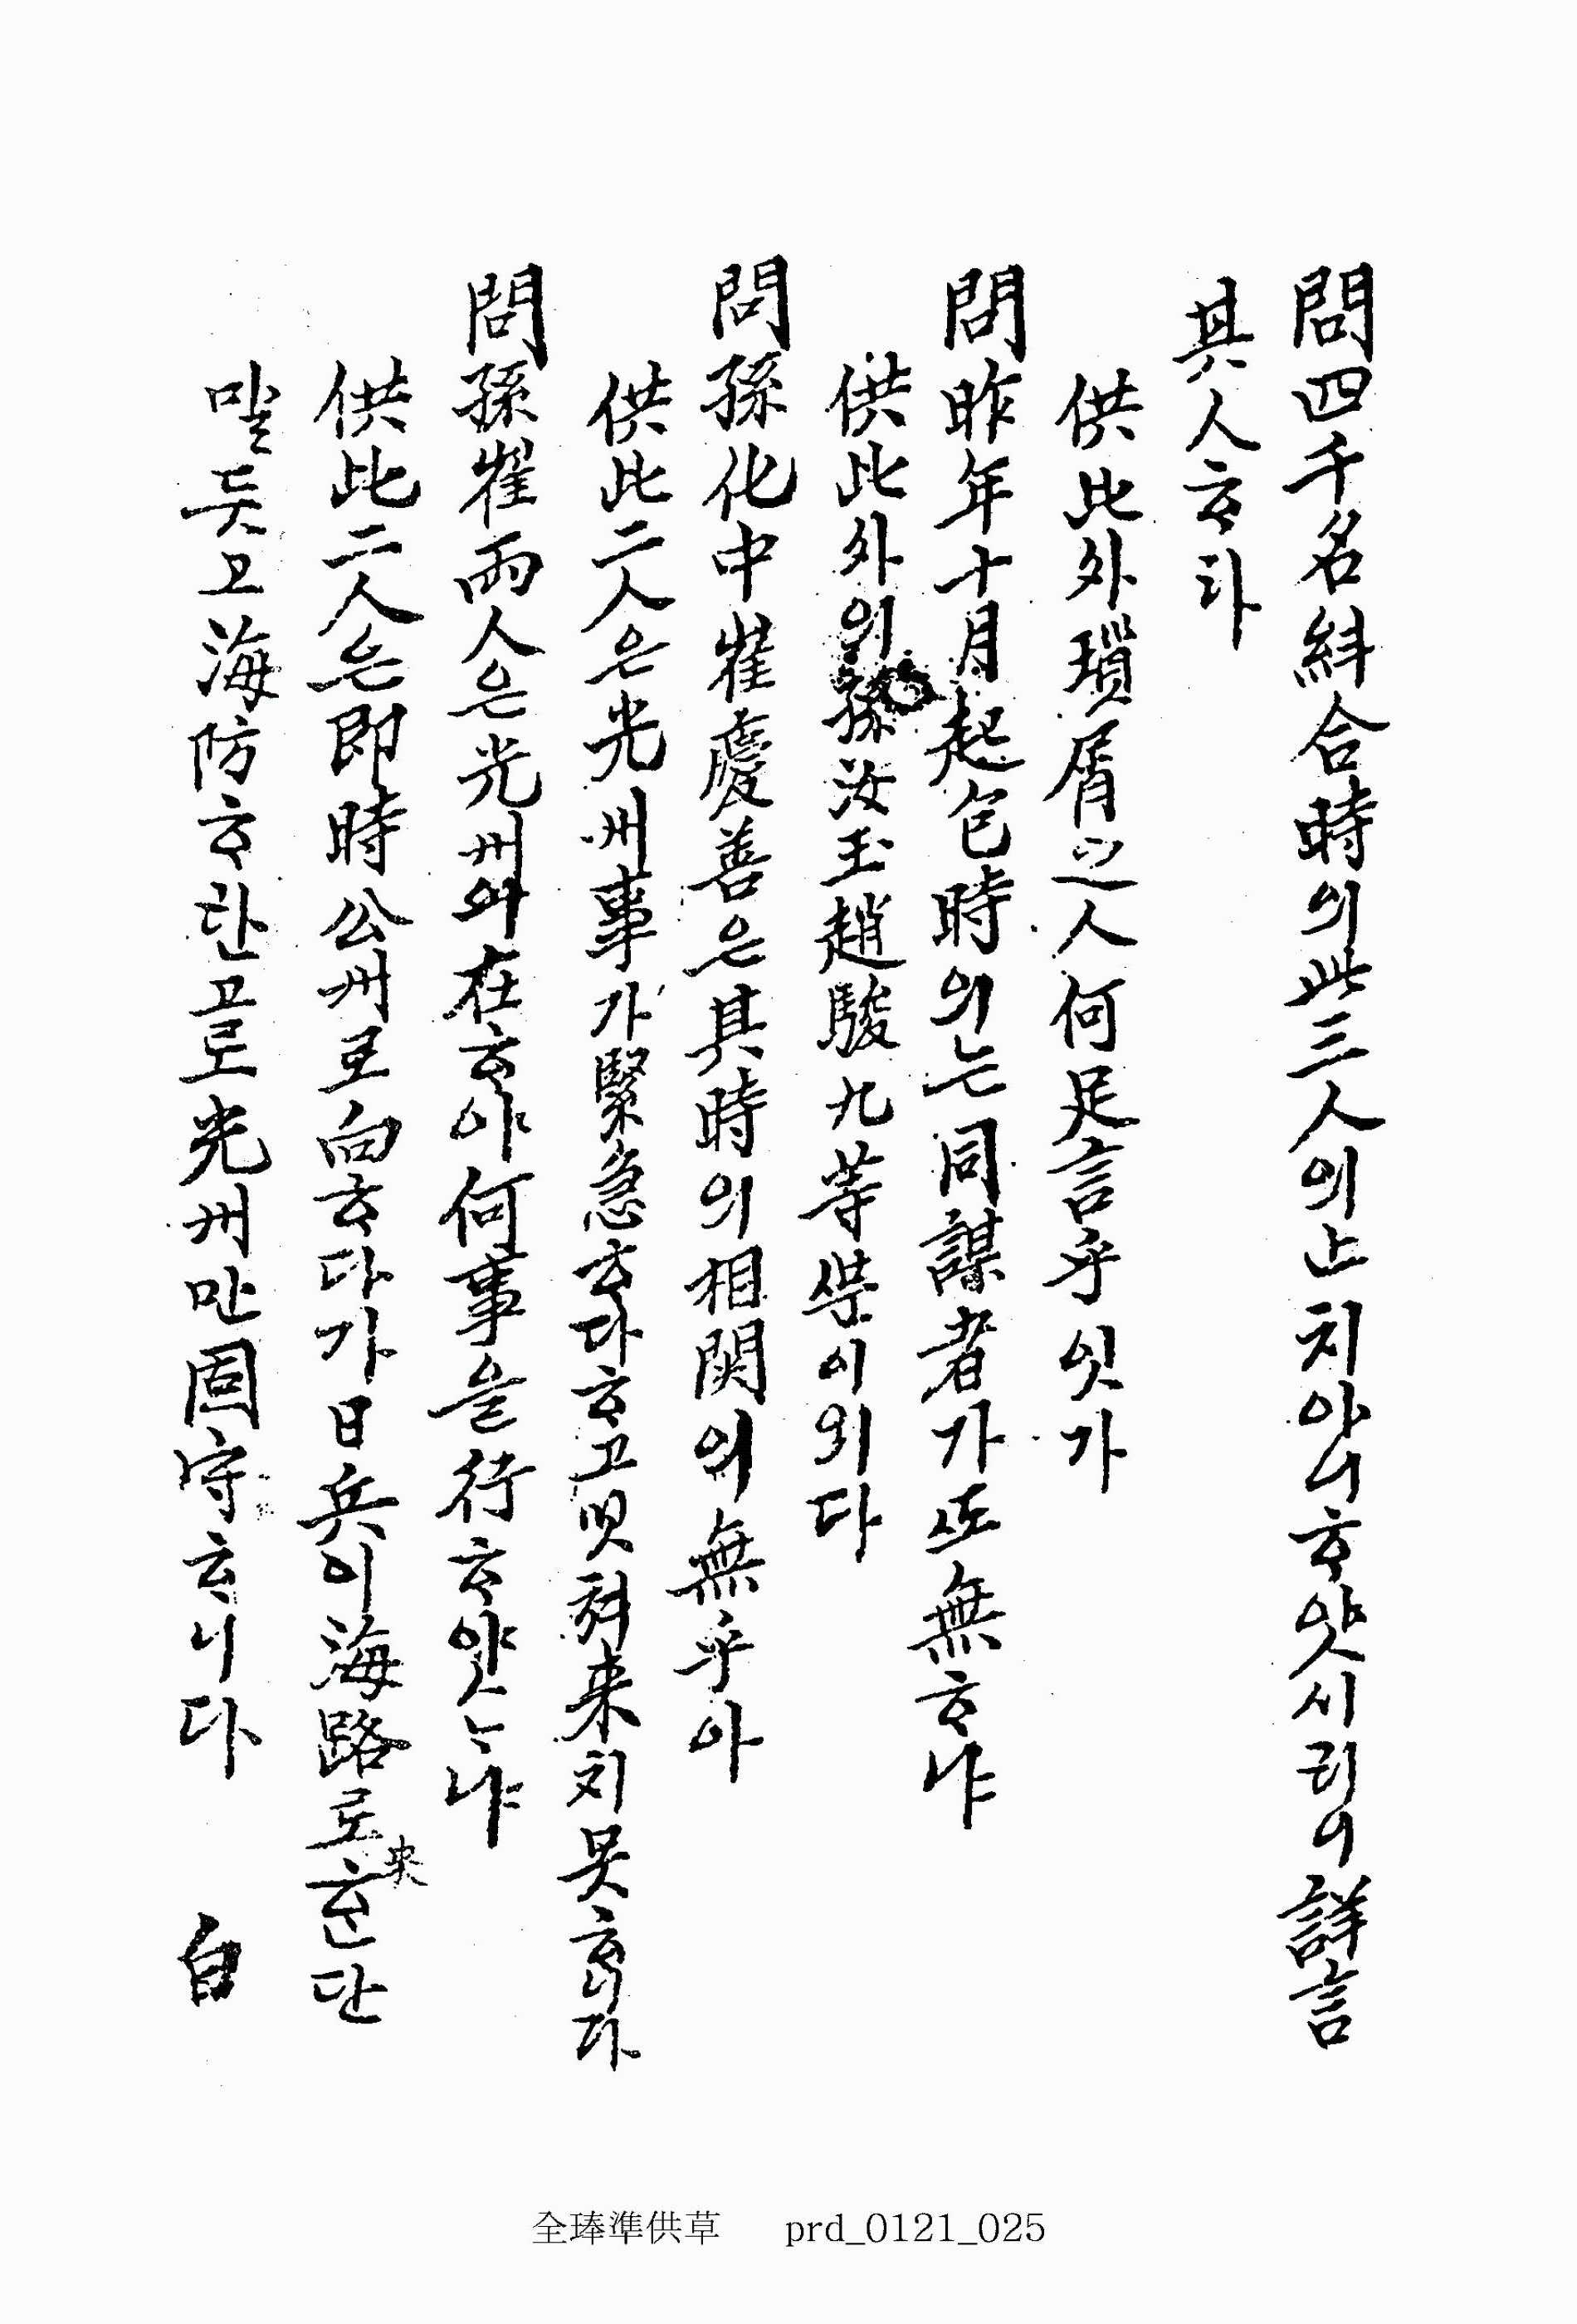 問四千名糾合時의此三人의止치아니ᄒᆞ얏시리니詳言
其人ᄒᆞ라
供此外瑣屑之人何足言乎잇가
問昨年十月起包時의ᄂᆞᆫ同謀者가亦無ᄒᆞ냐
供此外의孫汝玉趙駿九等ᄲᅮᆫ이외다
問孫化中崔慶善은其時의相関의無乎아
供此二人은光州事가緊急ᄒᆞ다ᄒᆞ고밋쳐来치못ᄒᆞ니다
問孫崔兩人은光州와在ᄒᆞ야何事을行ᄒᆞ얏ᄂᆞ냐
供此二人은即時公州로向ᄒᆞ다가日兵이海路로来ᄒᆞᆫ단
말듯고海防ᄒᆞ란고로光州만固守ᄒᆞ니다 白
全琫準供草 prd_0121_025